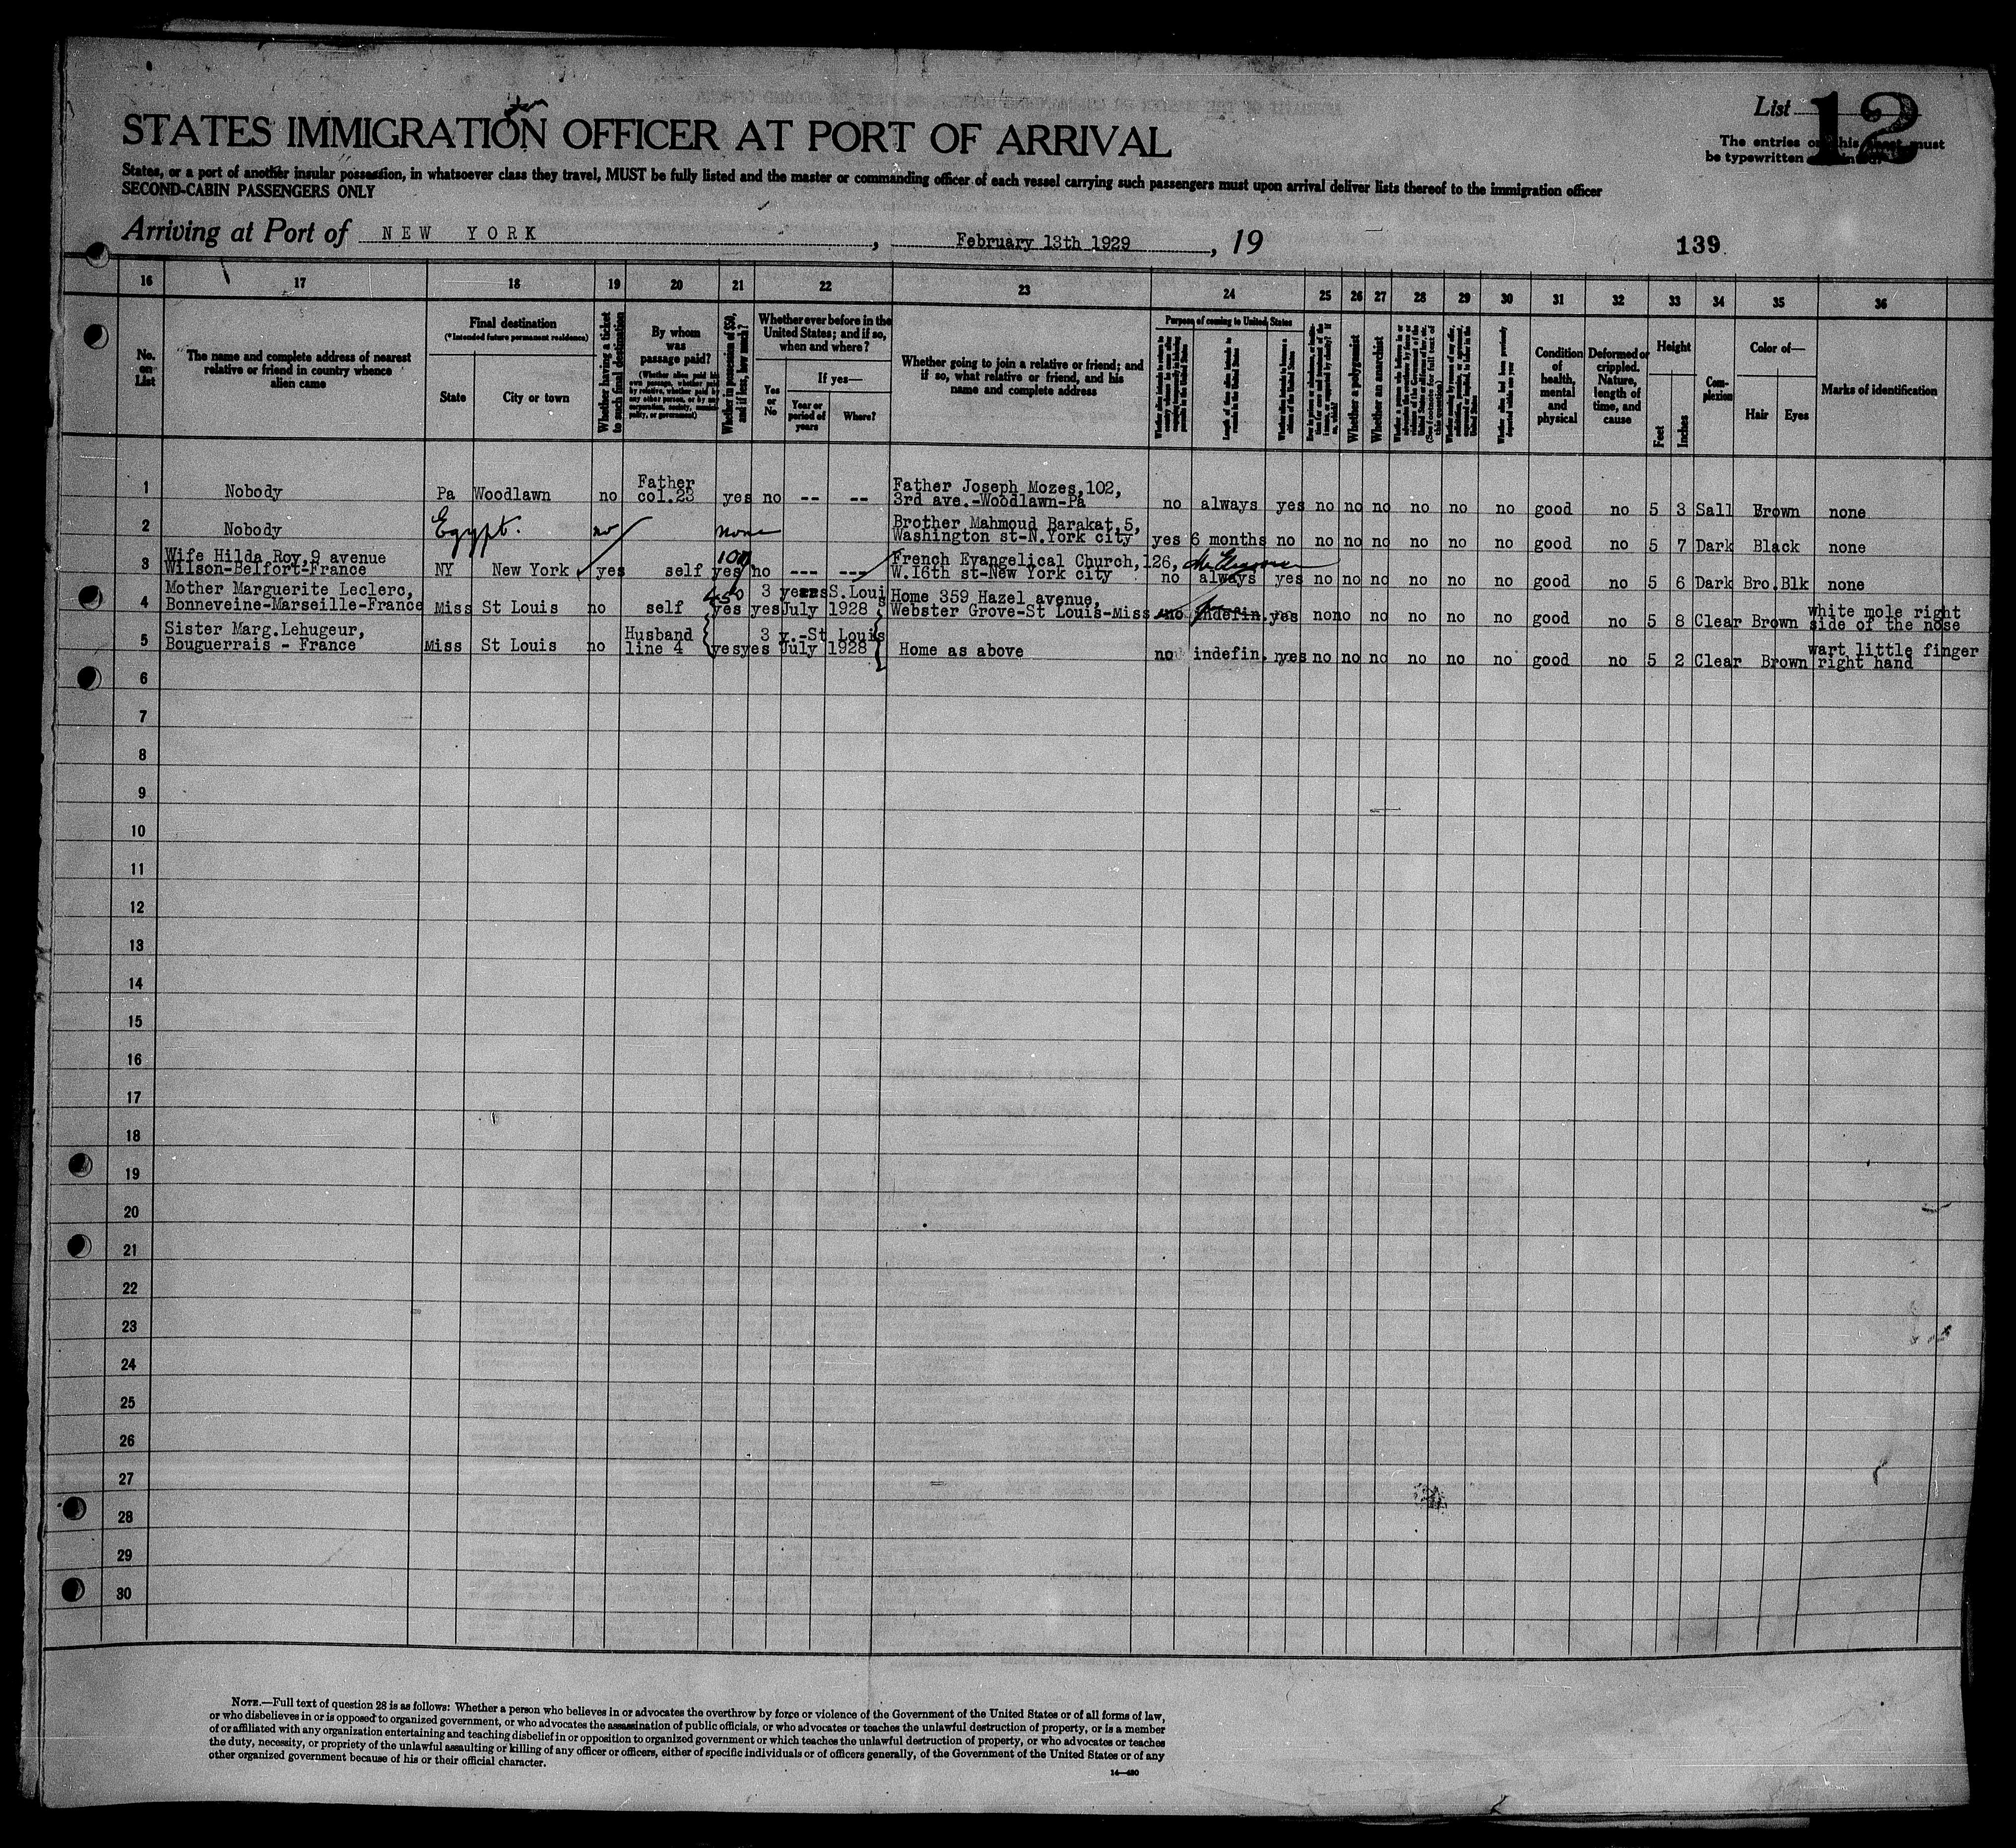 List 12
STATES IMMIGRATION OFFICER AT PORT OF ARRIVAL
The entries on this sheet must
be typewritten
States, or a port of another insular possession, in whatsoever class they travel, MUST be fully listed and the master or commanding officer of each vessel carrying such passengers must upon arrival deliver lists thereof to the immigration officer
SECOND-CABIN PASSENGERS ONLY
Arriving at Port of NEW YORK, February 13th 1929, 19
139
16 17 18 19 20 21 22 23 24 25 26 27 28 29 30 31 32 33 34 35 36
No. on List
The name and complete address of nearest relative or friend in country whence alien came
Final destination
(*Intended future permanent residence)
State
City or town
Whether having a ticket to such final destination
By whom was passage paid?
(Whether alien paid his own passage, whether paid by relative, whether paid by any other person, or by any corporation, society, municipality, or government)
Whether in possession of $50, and if less, how much?
Whether ever before in the United States; and if so, when and where?
Yes or No
If yes—
Year or period of years
Where?
Whether going to join a relative or friend; and if so, what relative or friend, and his name and complete address
Purpose of coming to United States
Length of time alien intends to remain in the United States
Whether alien intends to become a citizen of the United States
Whether a polygamist
Whether an anarchist
Whether alien had been previously deported within one year
Condition of health, mental and physical
Deformed or crippled. Nature, length of time, and cause
Height
Feet
Inches
Complexion
Color of—
Hair
Eyes
Marks of identification
1 Nobody Pa Woodlawn no Father col.23 yes no -- -- Father Joseph Mozes,102, 3rd ave.-Woodlawn-Pa no always yes no no no no no no good no 5 3 Sall Brown none
2 Nobody Egypt. no none Brother Mahmoud Barakat,5, Washington st-N.York city yes 6 months no no no no no no no good no 5 7 Dark Black none
3 Wife Hilda Roy,9 avenue Wilson-Belfort-France NY New York yes self 100 yes no --- --- French Evangelical Church,126, W.16th st-New York city no always yes no no no no no no good no 5 6 Dark Bro.Blk none
4 Mother Marguerite Leclerc, Bonneveine-Marseille-France Miss St Louis no self 450 yes yes 3 years July 1928 S.Loui Home 359 Hazel avenue, Webster Grove-St Louis-Miss no indefin. yes no no no no no no good no 5 8 Clear Brown white mole right side of the nose
5 Sister Marg.Lehugeur, Bouguerrais - France Miss St Louis no Husband line 4 yes yes 3 y.-St Louis July 1928 Home as above no indefin. yes no no no no no no good no 5 2 Clear Brown wart little finger right hand
6
7
8
9
10
11
12
13
14
15
16
17
18
19
20
21
22
23
24
25
26
27
28
29
30
NOTE.—Full text of question 28 is as follows: Whether a person who believes in or advocates the overthrow by force or violence of the Government of the United States or of all forms of law,
or who disbelieves in or is opposed to organized government, or who advocates the assassination of public officials, or who advocates or teaches the unlawful destruction of property, or is a member
of or affiliated with any organization entertaining and teaching disbelief in or opposition to organized government or which teaches the unlawful destruction of property, or who advocates or teaches
the duty, necessity, or propriety of the unlawful assaulting or killing of any officer or officers, either of specific individuals or of officers generally, of the Government of the United States or of any
other organized government because of his or their official character.
14—480